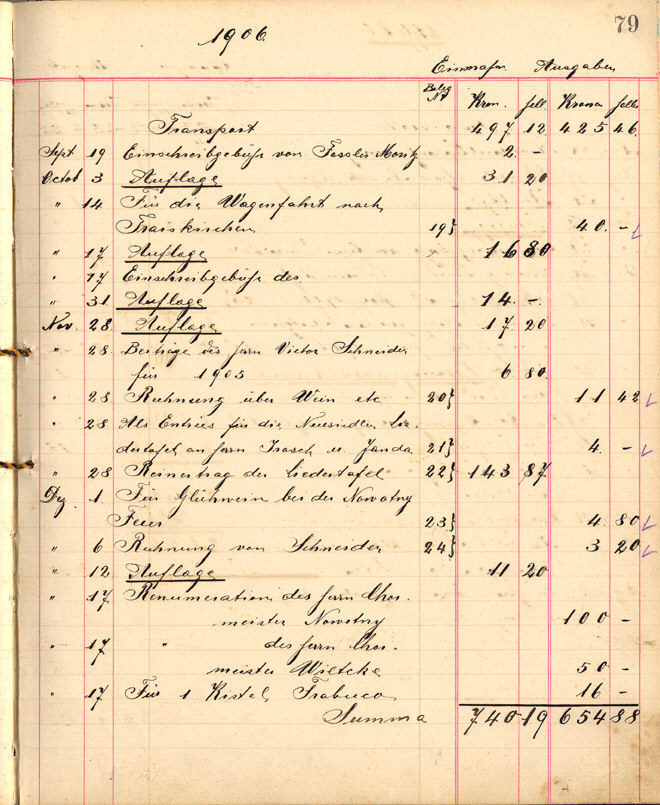 79
1906
Einnahm Ausgaben
Beleg Nr Kron. hell Kronen hell
Transport 497 12 425 46
Sept 19 Einschreibgebühr von Fessler Moritz 2. –
Octob 3 Auflage 31 20
" 14 Für die Wagenfahrt nach
Traiskirchen 19} 40. –
" 17 Auflage 16 80
" 17 Einschreibgebühr des
" 31 Auflage 14. –
Nov. 28 Auflage 17 20
" 28 Beiträge des Herrn Victor Schneider
für 1905 6 80.
" 28 Rechnung über Wein etc 20} 11 42
" 28 Als Entrées für die Neusiedler Lie
dertafel an Herrn Trosch u. Janda 21} 4. –
" 28 Reinertrag der Liedertafel 22} 143 87
Dez 1 Für Glühwein bei der Nowotny
Feier 23} 4 80
" 6 Rechnung von Schneider 24} 3 20
" 12 Auflage 11 20
" 17 Renumeration des Herrn Chor-
meister Nowotny 100 –
" 17 " des Herrn Chor-
meister Wiltcke 50 –
" 17 Für 1 Kistel Trabuco 16 –
Summa 740 19 654 88